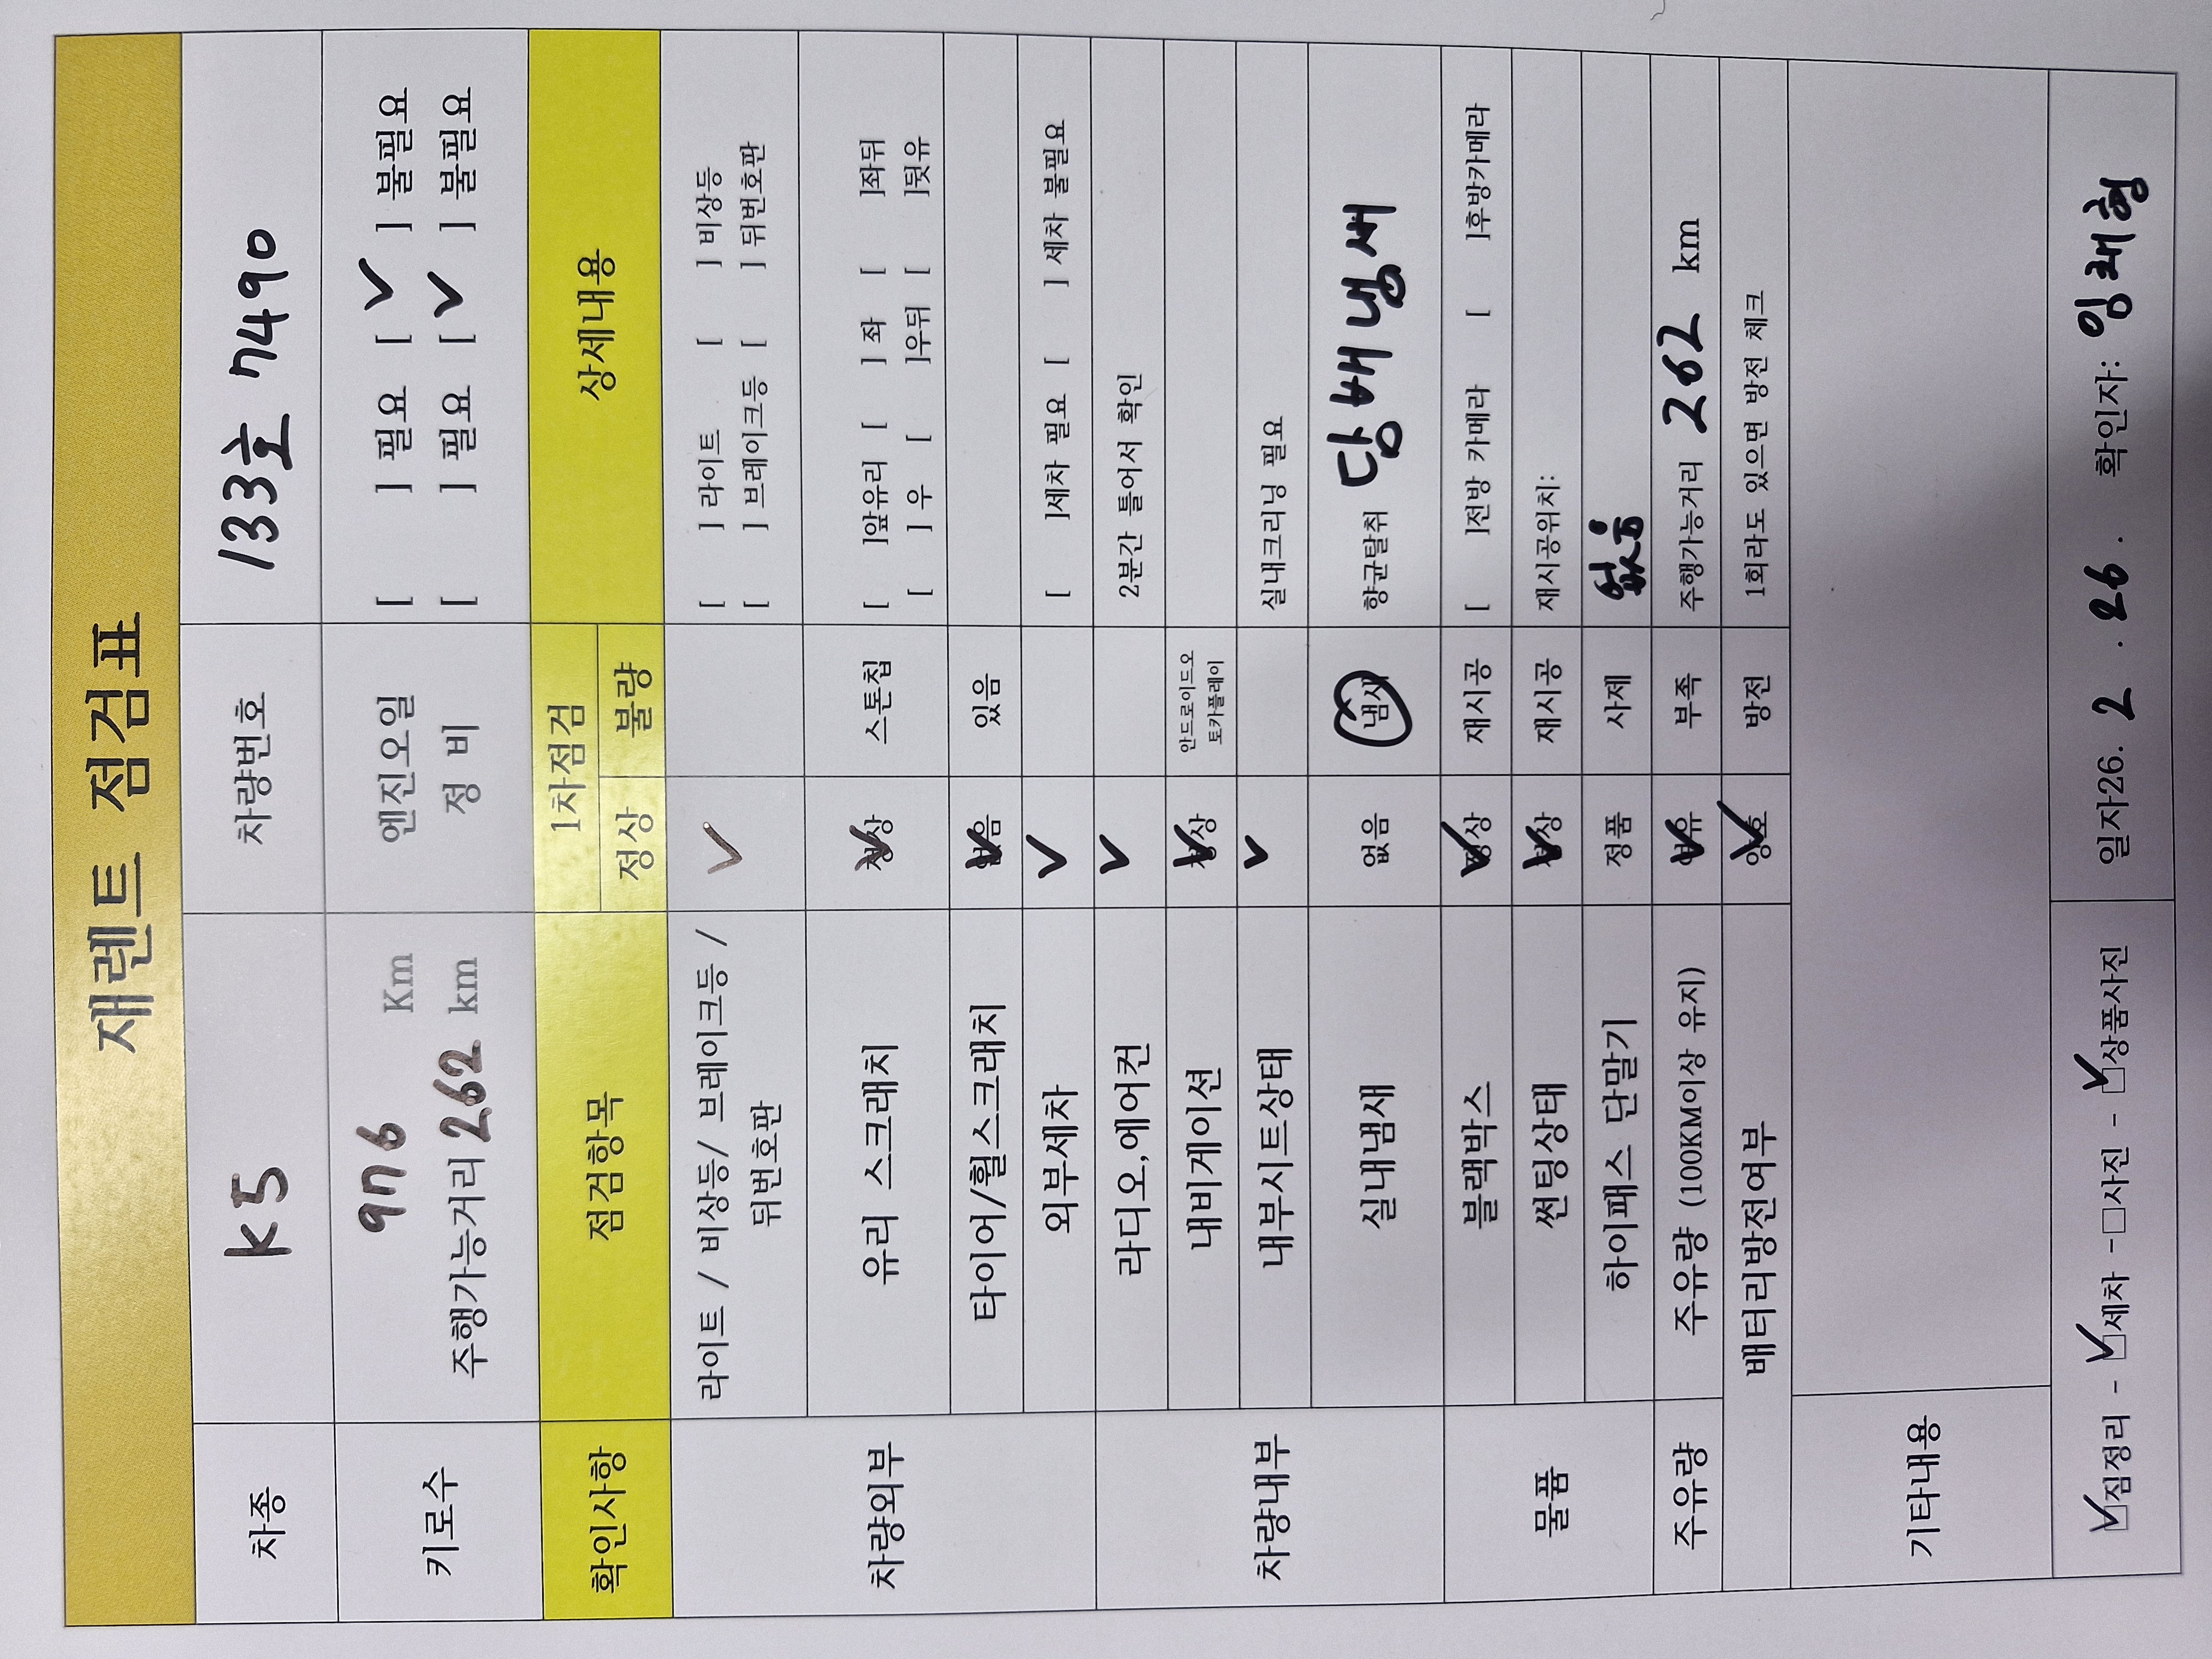 재렌트 점검표
차종 K5 차량번호 133호 7490
키로수 976 Km 엔진오일 [ ] 필요 [ ✓ ] 불필요
주행가능거리 262 km 정 비 [ ] 필요 [ ✓ ] 불필요
확인사항 점검항목 1차점검 상세내용
정상 불량
차량외부
라이트 / 비상등/ 브레이크등 / ✓ [ ] 라이트 [ ] 비상등
뒤번호판 [ ] 브레이크등 [ ] 뒤번호판
유리 스크래치 정상 ✓ 스톤칩 [ ]앞유리 [ ] 좌 [ ]좌뒤
[ ] 우 [ ]우뒤 [ ]뒷유
타이어/휠스크래치 없음 ✓ 있음
외부세차 ✓ [ ]세차 필요 [ ] 세차 불필요
차량내부
라디오,에어컨 ✓ 2분간 틀어서 확인
내비게이션 정상 ✓ 안드로이드오
토카플레이
내부시트상태 ✓ 실내크리닝 필요
실내냄새 없음 냄새 향균탈취 담배냄새
물품
블랙박스 정상 ✓ 재시공 [ ]전방 카메라 [ ]후방카메라
썬팅상태 정상 ✓ 재시공 재시공위치:
하이패스 단말기 정품 사제 없음
주유량 주유량 (100KM이상 유지) 여유 ✓ 부족 주행가능거리 262 km
배터리방전여부 양호 ✓ 방전 1회라도 있으면 방전 체크
기타내용
☑짐정리 - ☑세차 -☐사진 - ☑상품사진 일자26. 2 . 26 . 확인자: 임채형